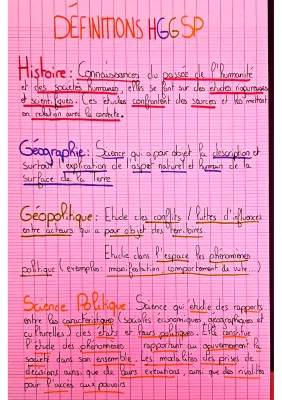 DÉFINITIONS HGGSP
Histoire : Connaissances du passée de l'humanité
et des sociétés humaines, elles se font sur des études rigoureuses
et scientifiques. Les études confrontent des sources et les mettent
en relation avec le contexte.
Géographie : Science qui a pour objet la description et
surtout explication de l'aspet naturel et humain de la
surface de la Terre
Géopolitique : Etude des conflits / luttes d'influences
entre acteurs qui a pour objet des territoires.
Etudié dans l'espace les phénomènes
politique (exemples : manifestation, comportement du vote...)
Science Politique : Science qui étudie des rapports
entre les caractéristiques (sociales économiques, géographiques et
culturelles) des états et leurs politiques. Elle constitue
l'étude des phénomènes rapportant au gouvernement la
société dans son ensemble. Les modalités des prises de
décisions ainsi que de leurs exécutions, ainsi que des rivalités
pour l'accès aux pouvoirs